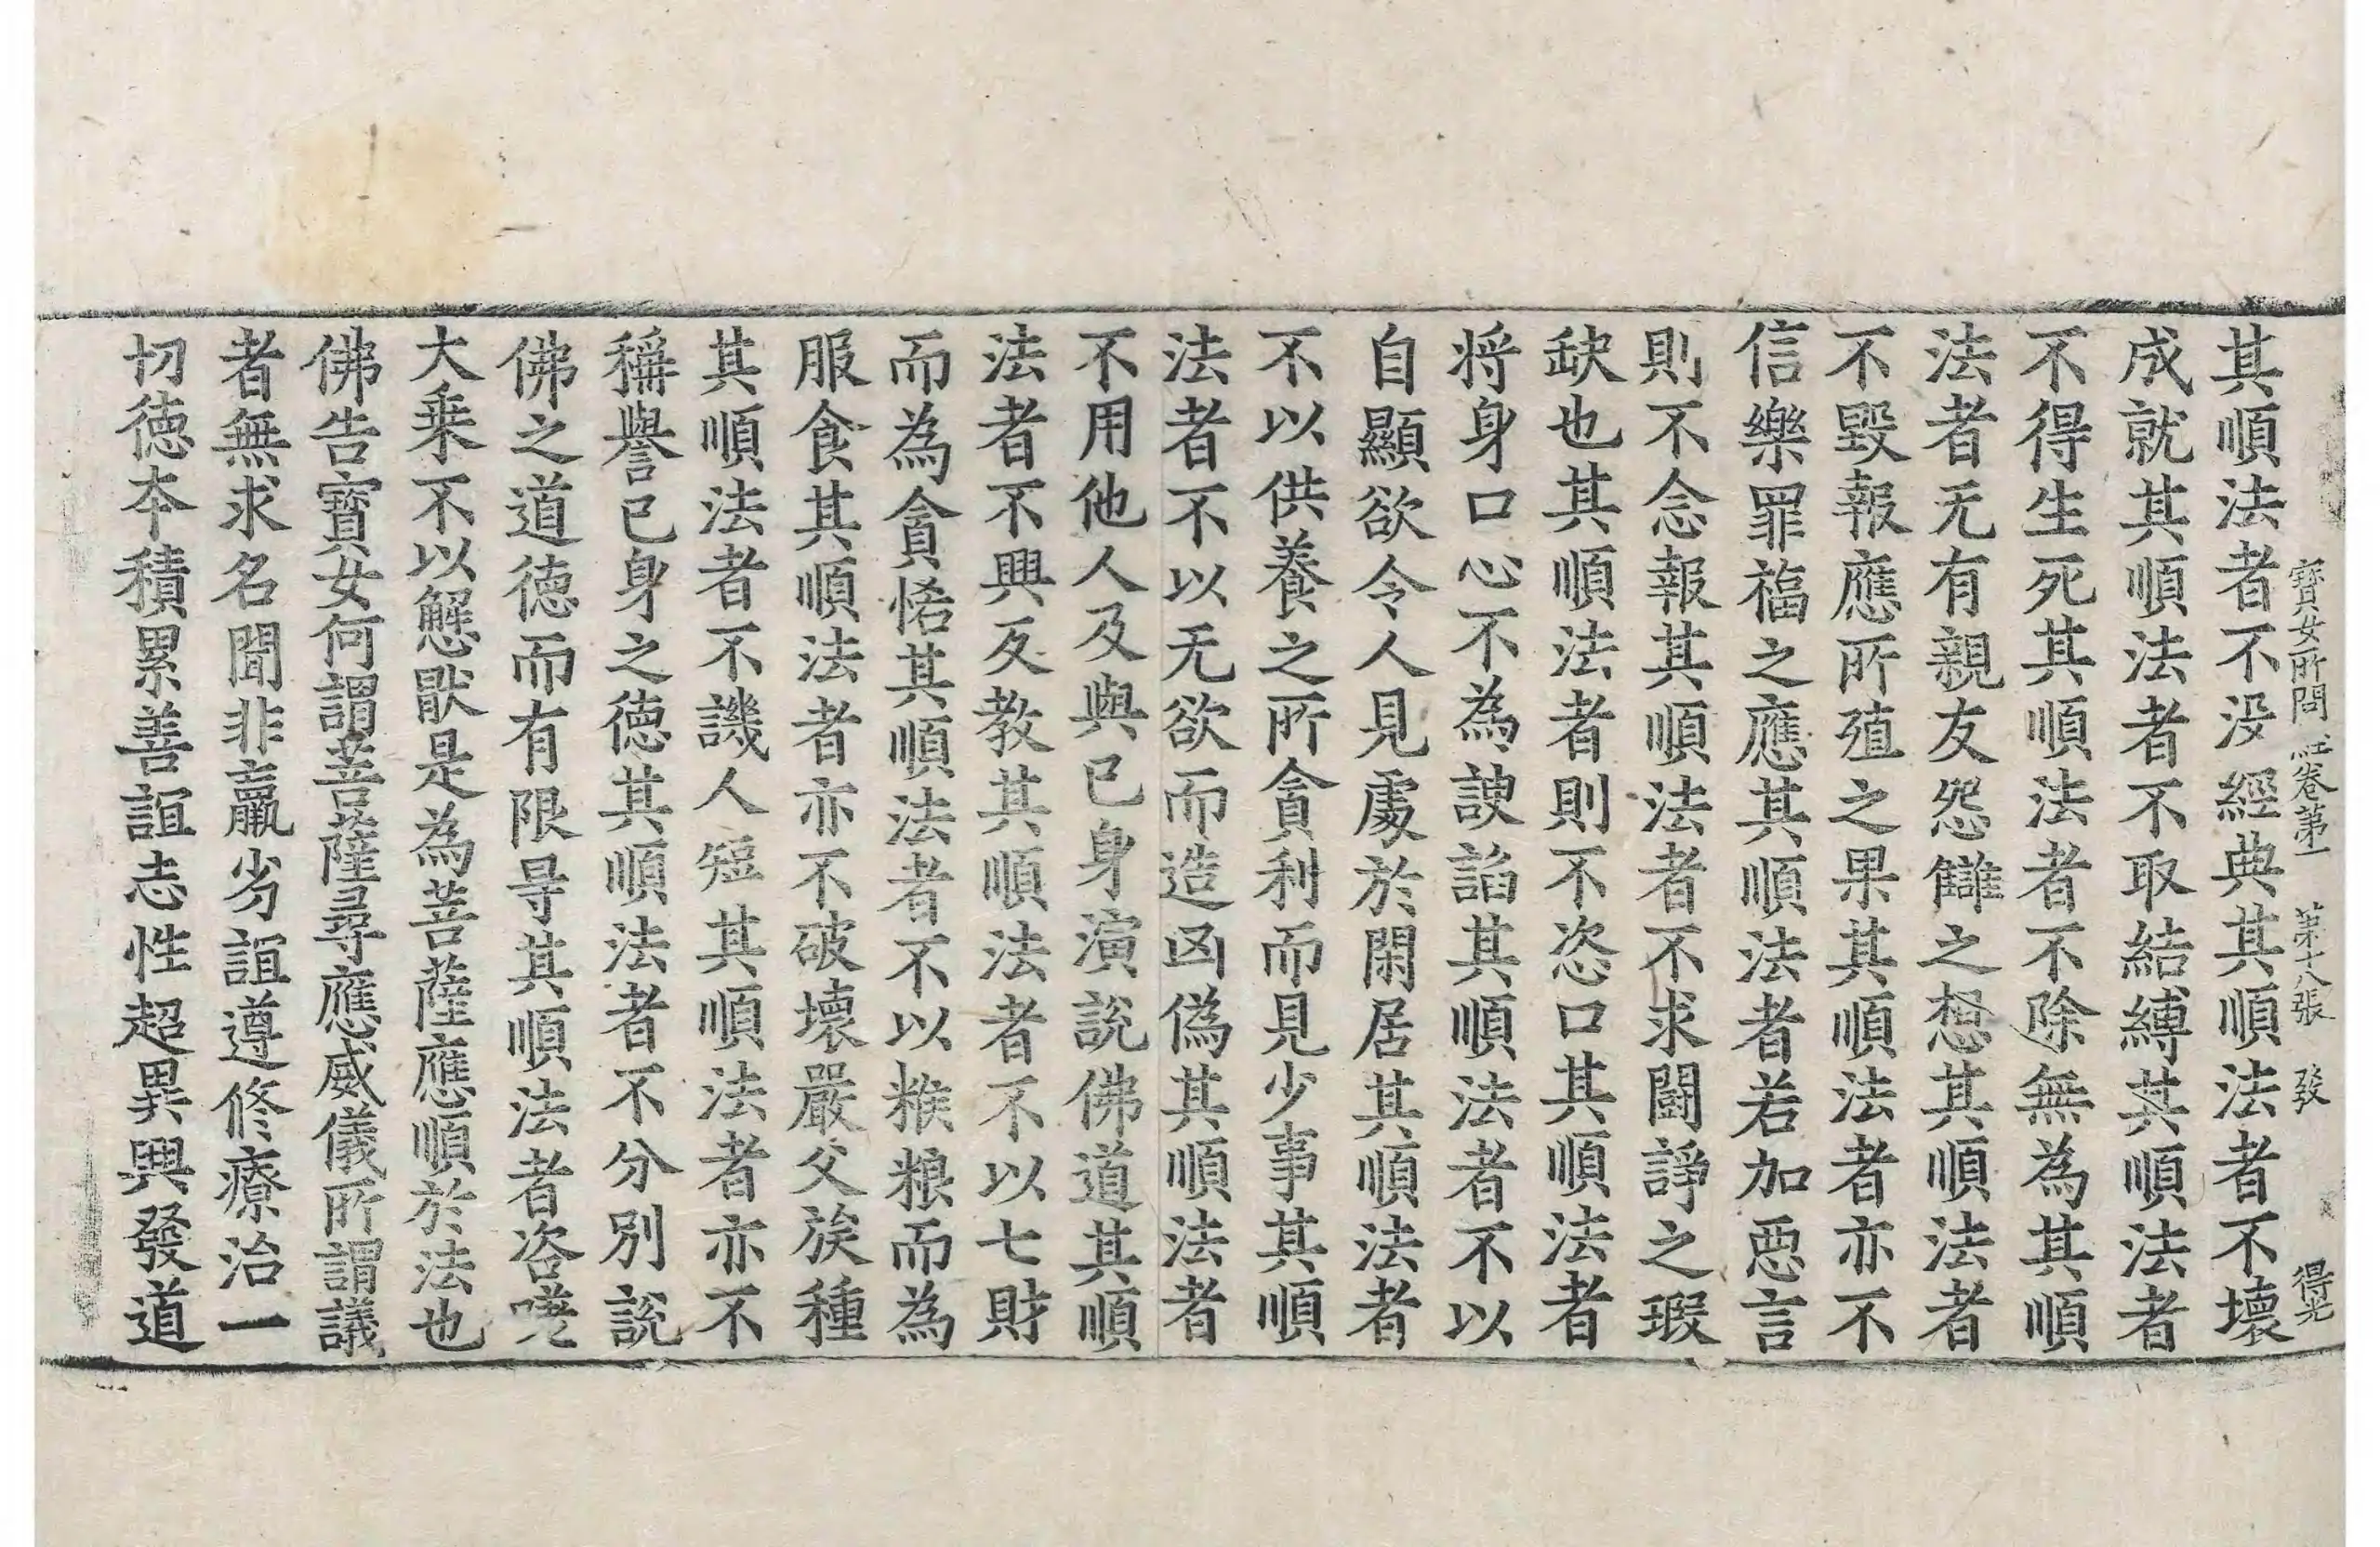 寶女所問經卷第一 第十八張 發 得光
其順法者不没經典其順法者不壞
成就其順法者不取結縛其順法者
不得生死其順法者不除無為其順
法者无有親友怨讎之想其順法者
不毀報應所殖之果其順法者亦不
信樂罪福之應其順法者若加惡言
則不念報其順法者不求闘諍之瑕
缺也其順法者則不恣口其順法者
将身口心不為諛諂其順法者不以
自顯欲令人見處於閑居其順法者
不以供養之所貪利而見少事其順
法者不以无欲而造凶偽其順法者
不用他人及與已身演說佛道其順
法者不興反教其順法者不以七財
而為貪悋其順法者不以糇粮而為
服食其順法者亦不破壞嚴父族種
其順法者不譏人短其順法者亦不
稱譽已身之徳其順法者不分別說
佛之道徳而有限㝵其順法者咨嗟
大乗不以懈猒是為菩薩應順於法也
佛告寶女何謂菩薩尋應威儀所謂議
者無求名聞非羸劣誼遵修療治一
切徳本積累善誼志性超異興發道